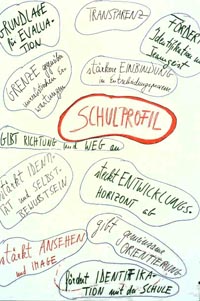 GRUNDLAGE
für EVALUA-
TION
TRANSPARENZ
FÖRDERT
Identifikation und
GRENZE gegenüber
unrealistischen Er-
wartungen
stärkere EINBINDUNG
in Entscheidungsprozesse
SCHULPROFIL
GIBT RICHTUNG und WEG an
stärkt IDENTI-
TÄT und SELBST-
BEWUSSTSEIN
steckt ENTWICKLUNGS-
HORIZONT ab
gibt gemeinsame
ORIENTIERUNG
stärkt ANSEHEN
und IMAGE
fördert IDENTIFIKA-
TION mit der SCHULE